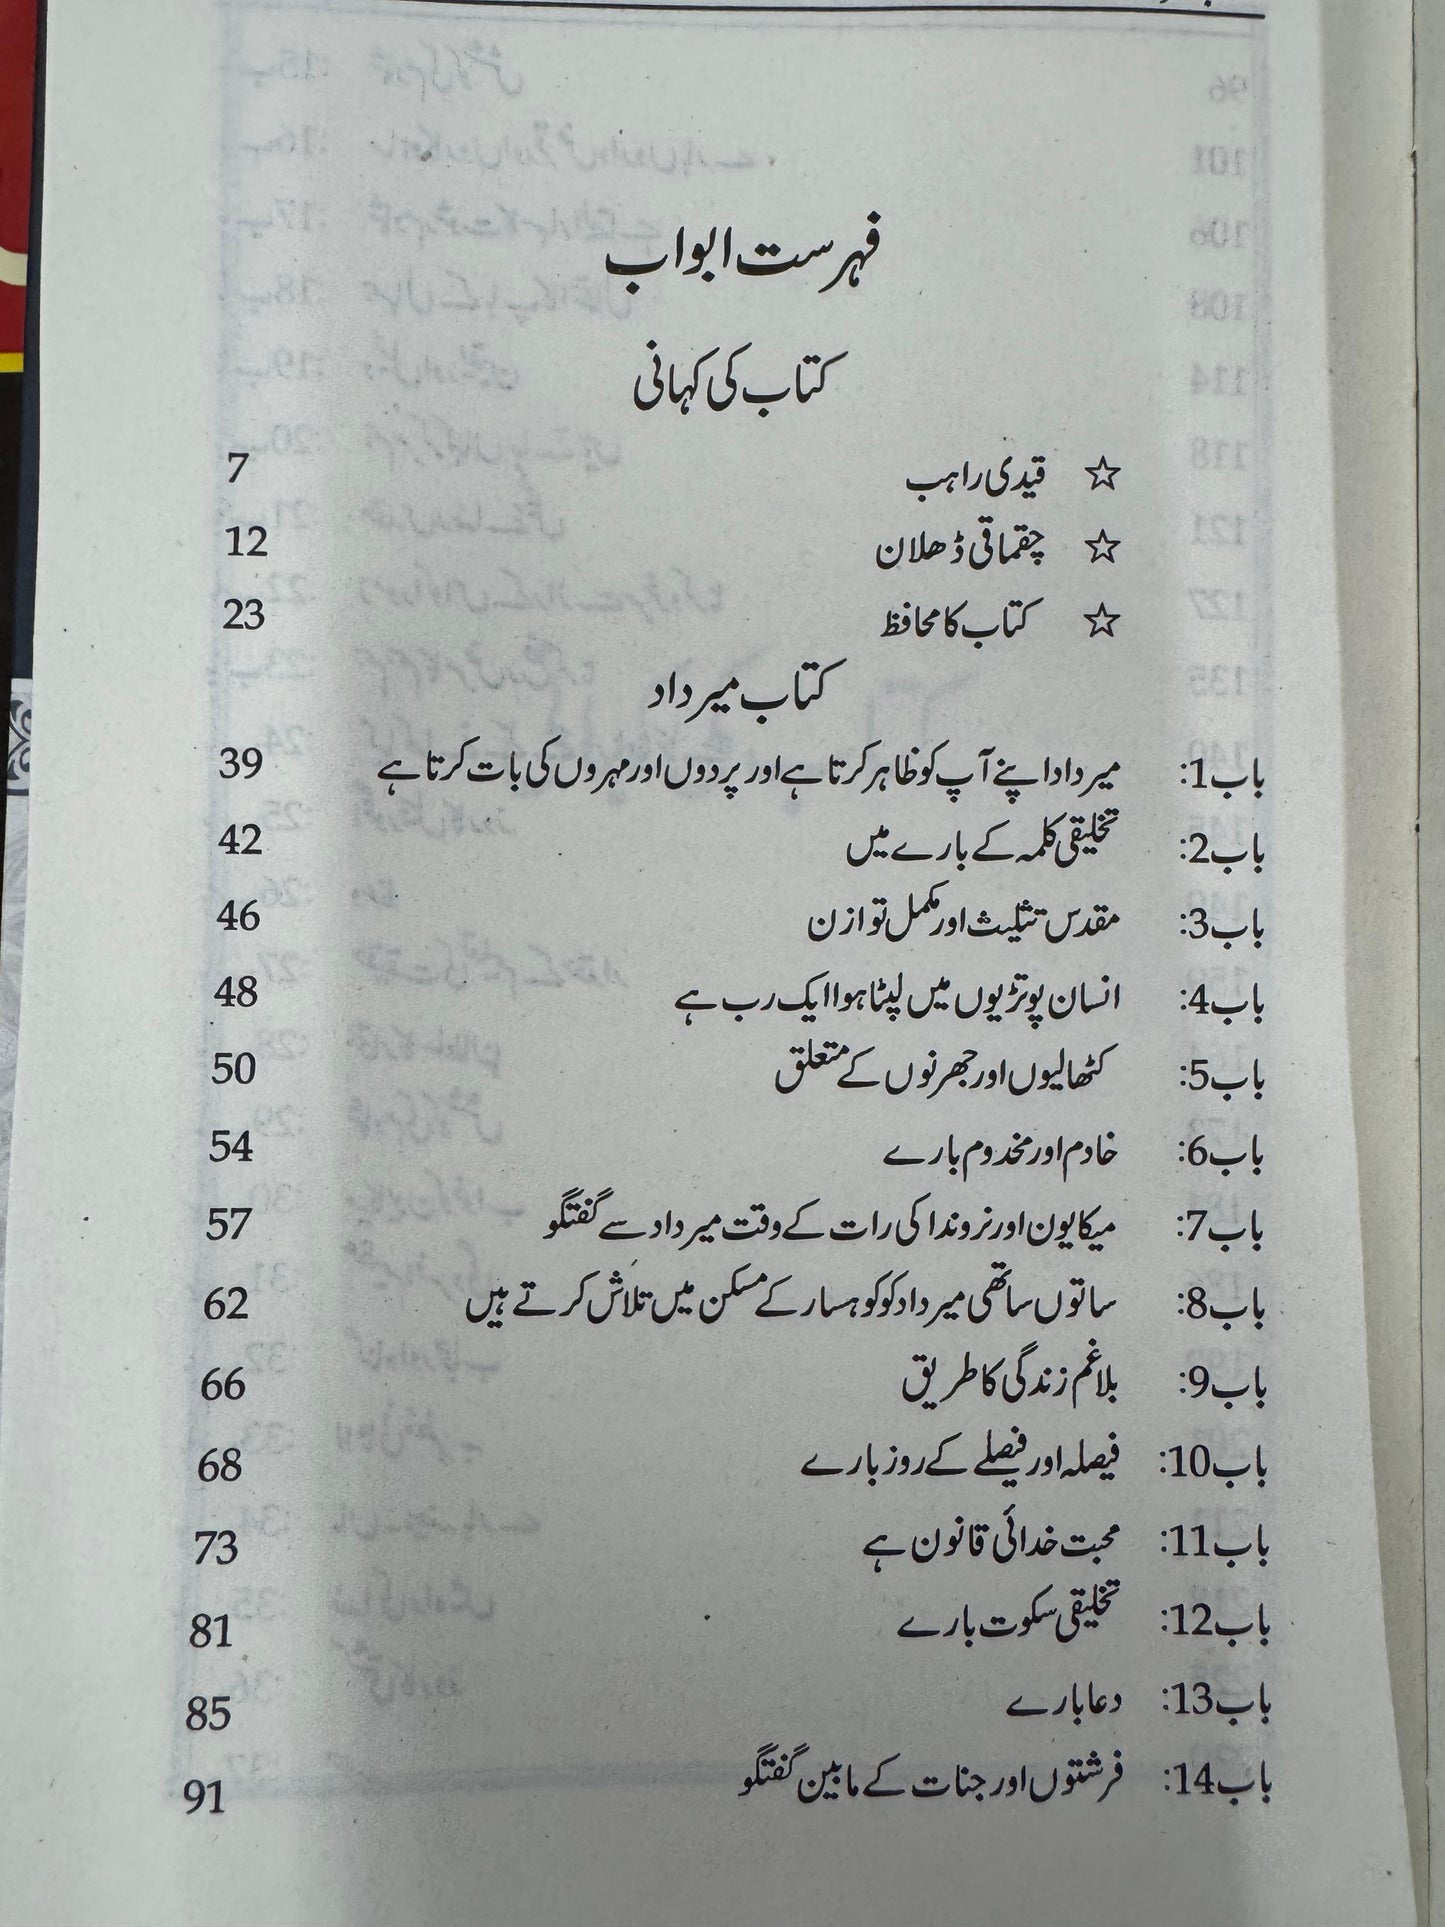 فہرست ابواب
کتاب کی کہانی
☆ قیدی راہب 7
☆ چقماقی ڈھلان 12
☆ کتاب کا محافظ 23
کتاب میرداد
باب1: میرداد اپنے آپ کو ظاہر کرتا ہے اور پردوں اور مہروں کی بات کرتا ہے 39
باب2: تخلیقی کلمہ کے بارے میں 42
باب3: مقدس تثلیث اور مکمل توازن 46
باب4: انسان پوتڑیوں میں لپٹا ہوا ایک رب ہے 48
باب5: کٹھالیوں اور جھرنوں کے متعلق 50
باب6: خادم اور مخدوم بارے 54
باب7: میکایون اور نروندا کی رات کے وقت میرداد سے گفتگو 57
باب8: ساتوں ساتھی میرداد کو کوہسار کے مسکن میں تلاش کرتے ہیں 62
باب9: بلاغم زندگی کا طریق 66
باب10: فیصلہ اور فیصلے کے روز بارے 68
باب11: محبت خدائی قانون ہے 73
باب12: تخلیقی سکوت بارے 81
باب13: دعا بارے 85
باب14: فرشتوں اور جنات کے مابین گفتگو 91